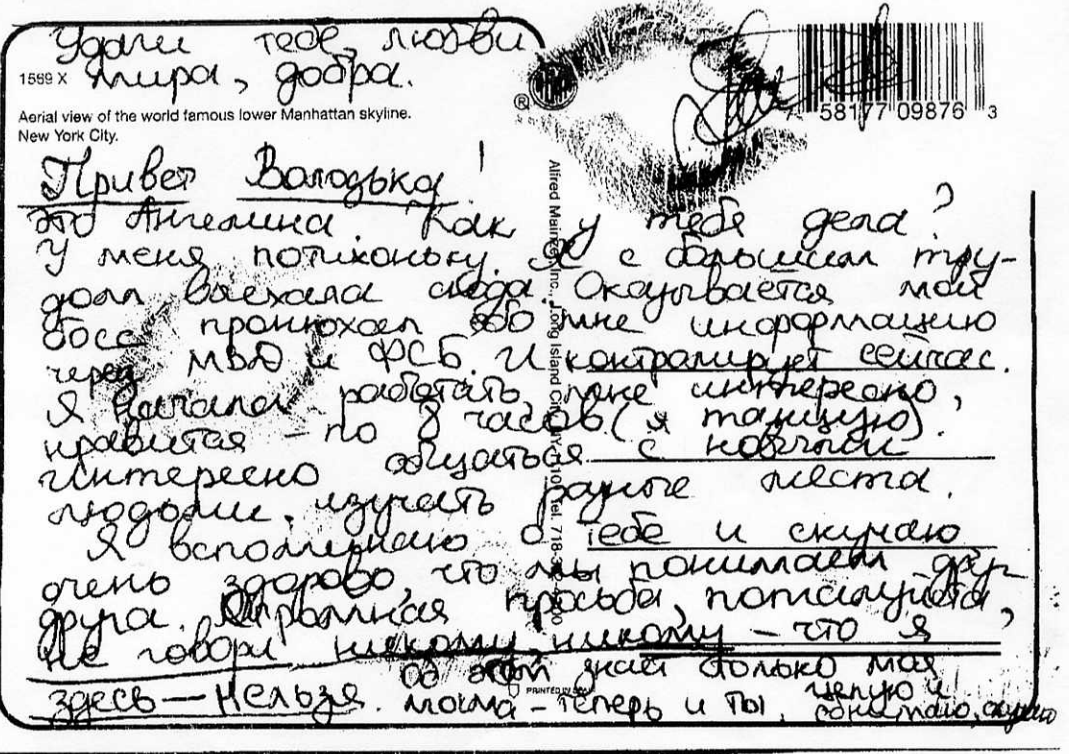 Удачи тебе, любви
мира, добра.
1569 X
Aerial view of the world famous lower Manhattan skyline.
New York City.
®
7 58177 09876 3
Привет Володька!
это Ангелина. Как у тебя дела?
У меня потихоньку. Я с большим тру-
дом выехала сюда. Оказывается мой
босс пронюхал обо мне информацию
через МВД и ФСБ. И контролирует сейчас.
Я начала работать, мне интересно,
нравится - по 8 часов (я танцую).
Интересно общаться с новыми
людьми, изучать разные места.
Я вспоминаю о тебе и скучаю
очень здорово, что мы понимаем друг
друга. Огромная просьба, пожалуйста,
не говори никому, никому - что я
здесь — нельзя. об этом знает только моя
мама - теперь и ты. целую и
обнимаю, скучаю
Alfred Mainzer, Inc., Long Island City, NY 11101 Tel. 718-
PRINTED IN